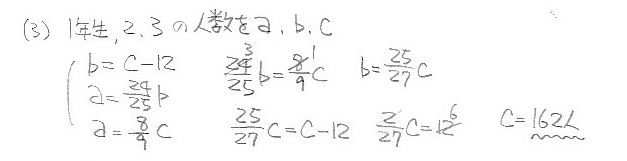 (3) 1年生, 2, 3 の人数を a, b, c
b = c-12 24/25 b = 8/9 c b = 25/27 c
a = 24/25 b
a = 8/9 c 25/27 c = c-12 2/27 c = 12 c = 162人
3 1 6